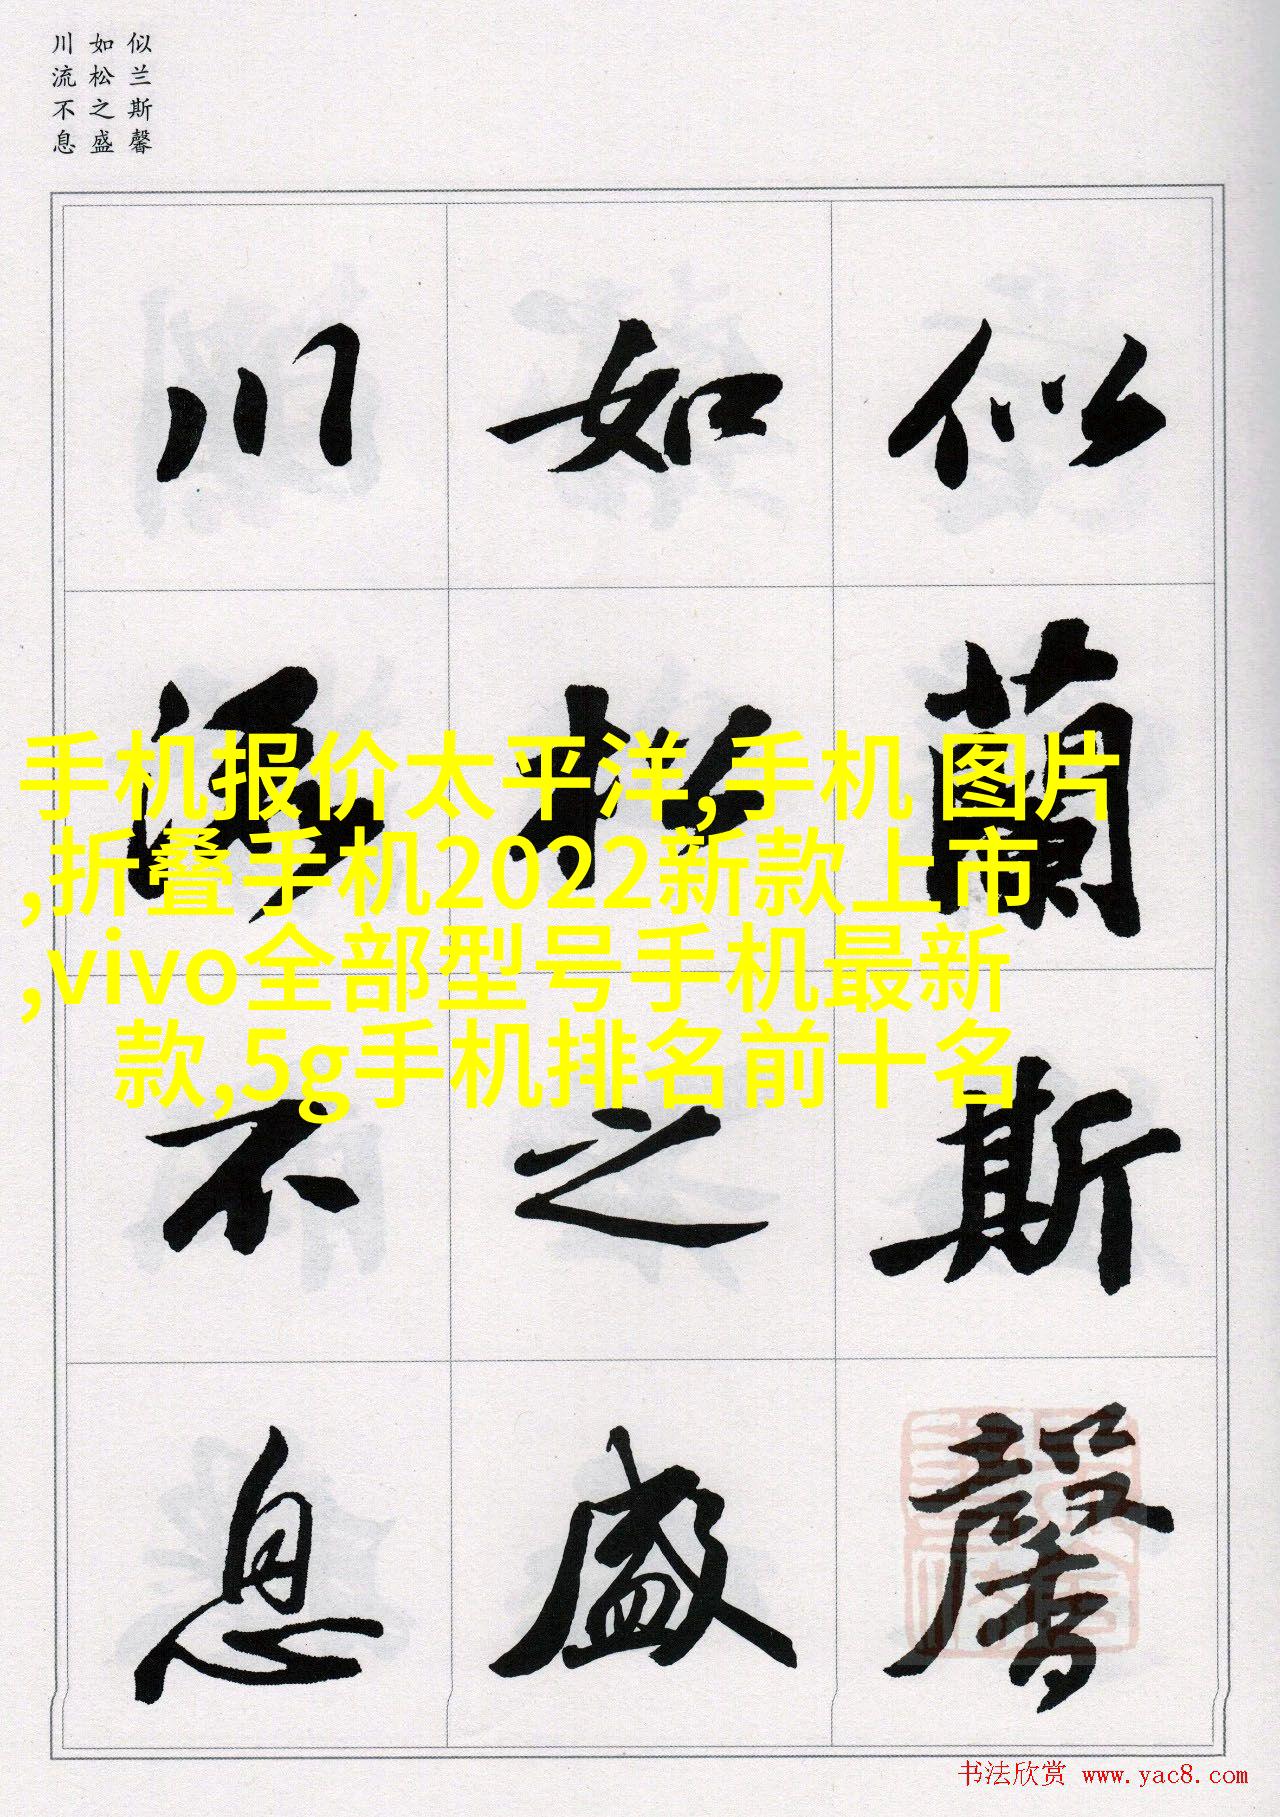 似兰斯馨
如松之盛
川流不息
似蘭斯馨
如松之盛
川流不息
手机报价太平洋,手机 图片
,折叠手机2022新款上市
,vivo全部型号手机最新
款,5g手机排名前十名
书法欣赏 www.yac8.com